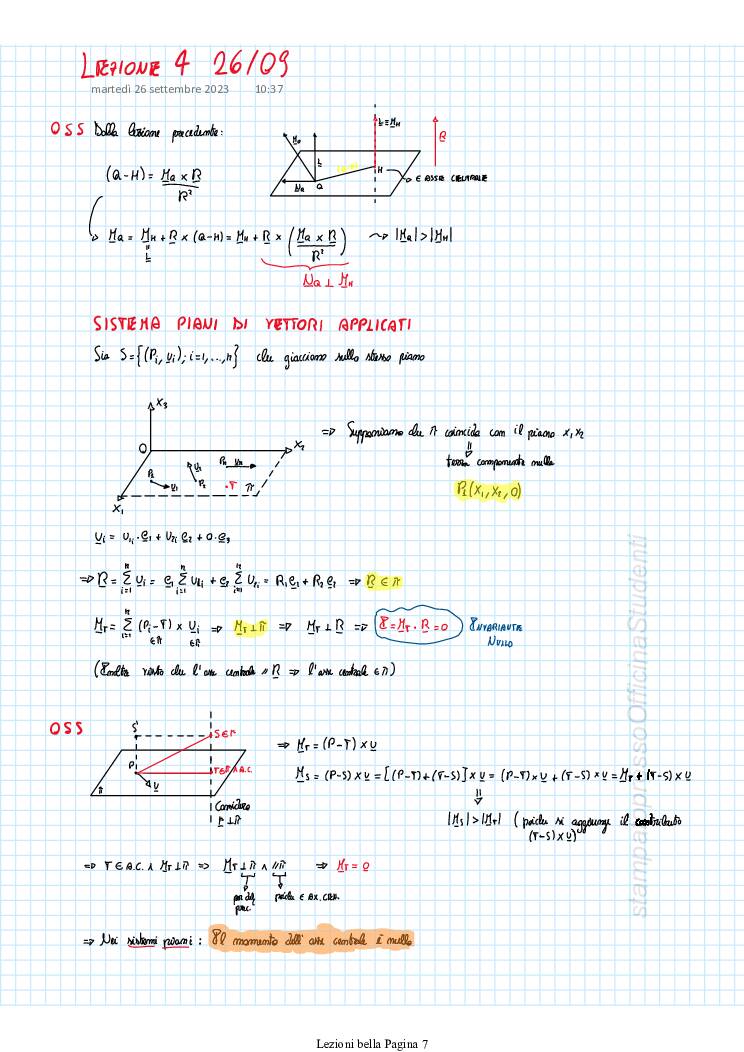 LEZIONE 4 26/09
martedì 26 settembre 2023 10:37
OSS Dalla lezione precedente:
(Q-H) = M_Q × R / R²
M_Q
t
N_Q
Q
t ≡ M_H
H
R
∈ ASSE CENTRALE
M_Q = M_H + R × (Q-H) = M_H + R × (M_Q × R / R²) ⇝ |M_Q| > |M_H|
N_Q ⊥ M_H
SISTEMA PIANI DI VETTORI APPLICATI
Sia S = {(P_i, u_i); i=1,...,n} che giacciono sullo stesso piano
X_3
O
X_2
X_1
P_1 u_1
P_2 u_2
P_n u_n
·T π
⇒ Supponiamo che π coincida con il piano x_1 x_2
terza componente nulla
P_1(X_1, X_2, 0)
u_i = u_1i · e_1 + u_2i e_2 + 0 · e_3
⇒ R = Σ_{i=1}^n u_i = e_1 Σ_{i=1}^n u_1i + e_2 Σ_{i=1}^n u_2i = R_1 e_1 + R_2 e_2 ⇒ R ∈ π
M_T = Σ_{i=1}^n (P_i - T) × u_i ⇒ M_T ⊥ π ⇒ M_T ⊥ R ⇒ I = M_T · R = 0 INVARIANTE NULLO
∈π ∈π
(Inoltre visto che l'asse centrale // R ⇒ l'asse centrale ∈ π)
OSS
S'
S ∈ r
P
T ∈ π ∧ A.C.
u
π
Considero
r ⊥ π
⇒ M_T = (P-T) × u
M_S = (P-S) × u = [(P-T)+(T-S)] × u = (P-T) × u + (T-S) × u = M_T + (T-S) × u
|M_S| > |M_T| (poiché si aggiunge il contributo
(T-S) × u)
⇒ T ∈ A.C. ∧ M_T ⊥ π ⇒ M_T ⊥ π ∧ // π ⇒ M_T = 0
per def prec. poiché ∈ AX. CEN.
⇒ Nei sistemi piani: Il momento dell'asse centrale è nullo
stampa presso OfficinaStudenti
Lezioni bella Pagina 7